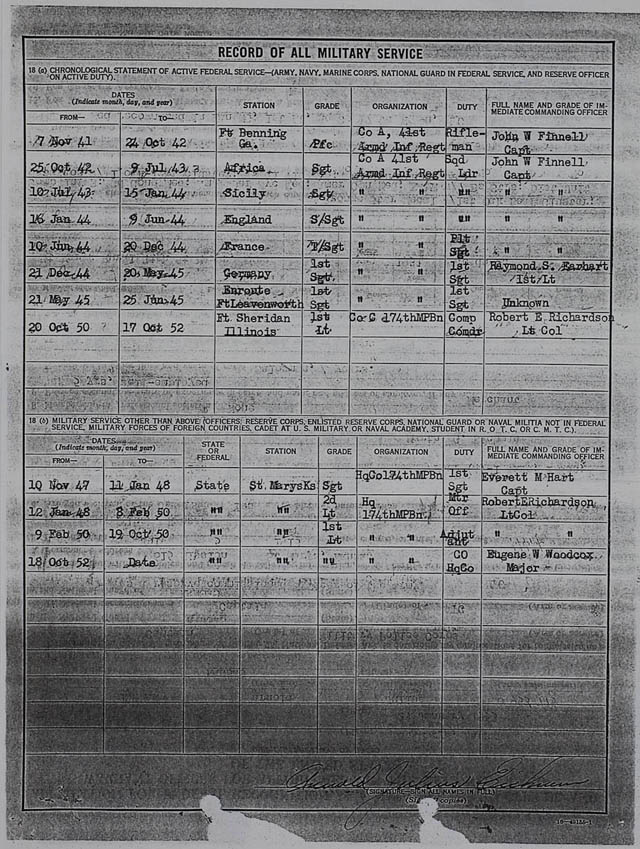 RECORD OF ALL MILITARY SERVICE
18 (a) CHRONOLOGICAL STATEMENT OF ACTIVE FEDERAL SERVICE—(ARMY, NAVY, MARINE CORPS, NATIONAL GUARD IN FEDERAL SERVICE, AND RESERVE OFFICER
ON ACTIVE DUTY).
DATES
(Indicate month, day, and year)
FROM— TO—
STATION GRADE ORGANIZATION DUTY FULL NAME AND GRADE OF IM-
MEDIATE COMMANDING OFFICER
Ft Benning Co A, 41st Rifle- John W Finnell
7 Nov 41 24 Oct 42 Ga. Pfc Armd Inf Regt man Capt
Co A 41st Sqd John W Finnell
25 Oct 42 9 Jul 43 Africa Sgt Armd Inf Regt Ldr Capt
10 Jul 43 15 Jan 44 Sicily Sgt " " "" " "
16 Jan 44 9 Jun 44 England S/Sgt " " "" " "
Plt
10 Jun 44 20 Dec 44 France T/Sgt " " Sgt " "
1st 1st Raymond S. Earhart
21 Dec 44 20 May 45 Germany Sgt " " Sgt 1st Lt
Enroute 1st 1st
21 May 45 25 Jun 45 Ft Leavenworth Sgt " " Sgt Unknown
Ft. Sheridan 1st Co C 174thMPBn Comp Robert E. Richardson
20 Oct 50 17 Oct 52 Illinois Lt Comdr Lt Col
18 (b) MILITARY SERVICE OTHER THAN ABOVE (OFFICERS' RESERVE CORPS, ENLISTED RESERVE CORPS, NATIONAL GUARD OR NAVAL MILITIA NOT IN FEDERAL
SERVICE, MILITARY FORCES OF FOREIGN COUNTRIES, CADET AT U. S. MILITARY OR NAVAL ACADEMY, STUDENT IN R. O. T. C. OR C. M. T. C.)
DATES
(Indicate month, day, and year)
FROM— TO—
STATE
OR
FEDERAL
STATION GRADE ORGANIZATION DUTY FULL NAME AND GRADE OF IM-
MEDIATE COMMANDING OFFICER
HqCo174thMPBn 1st Everett M Hart
10 Nov 47 11 Jan 48 State St. MarysKs Sgt Sgt Capt
2d Hq Mtr RobertERichardson
12 Jan 48 8 Feb 50 "" "" Lt 174thMPBn Off LtCol
1st Adjut
9 Feb 50 19 Oct 50 "" "" Lt " " ant " "
CO Eugene W Woodcox
18 Oct 52 Date "" "" "" " " HqCo Major
(SIGNATURE—SIGN ALL NAMES IN FULL)
(Sign all copies)